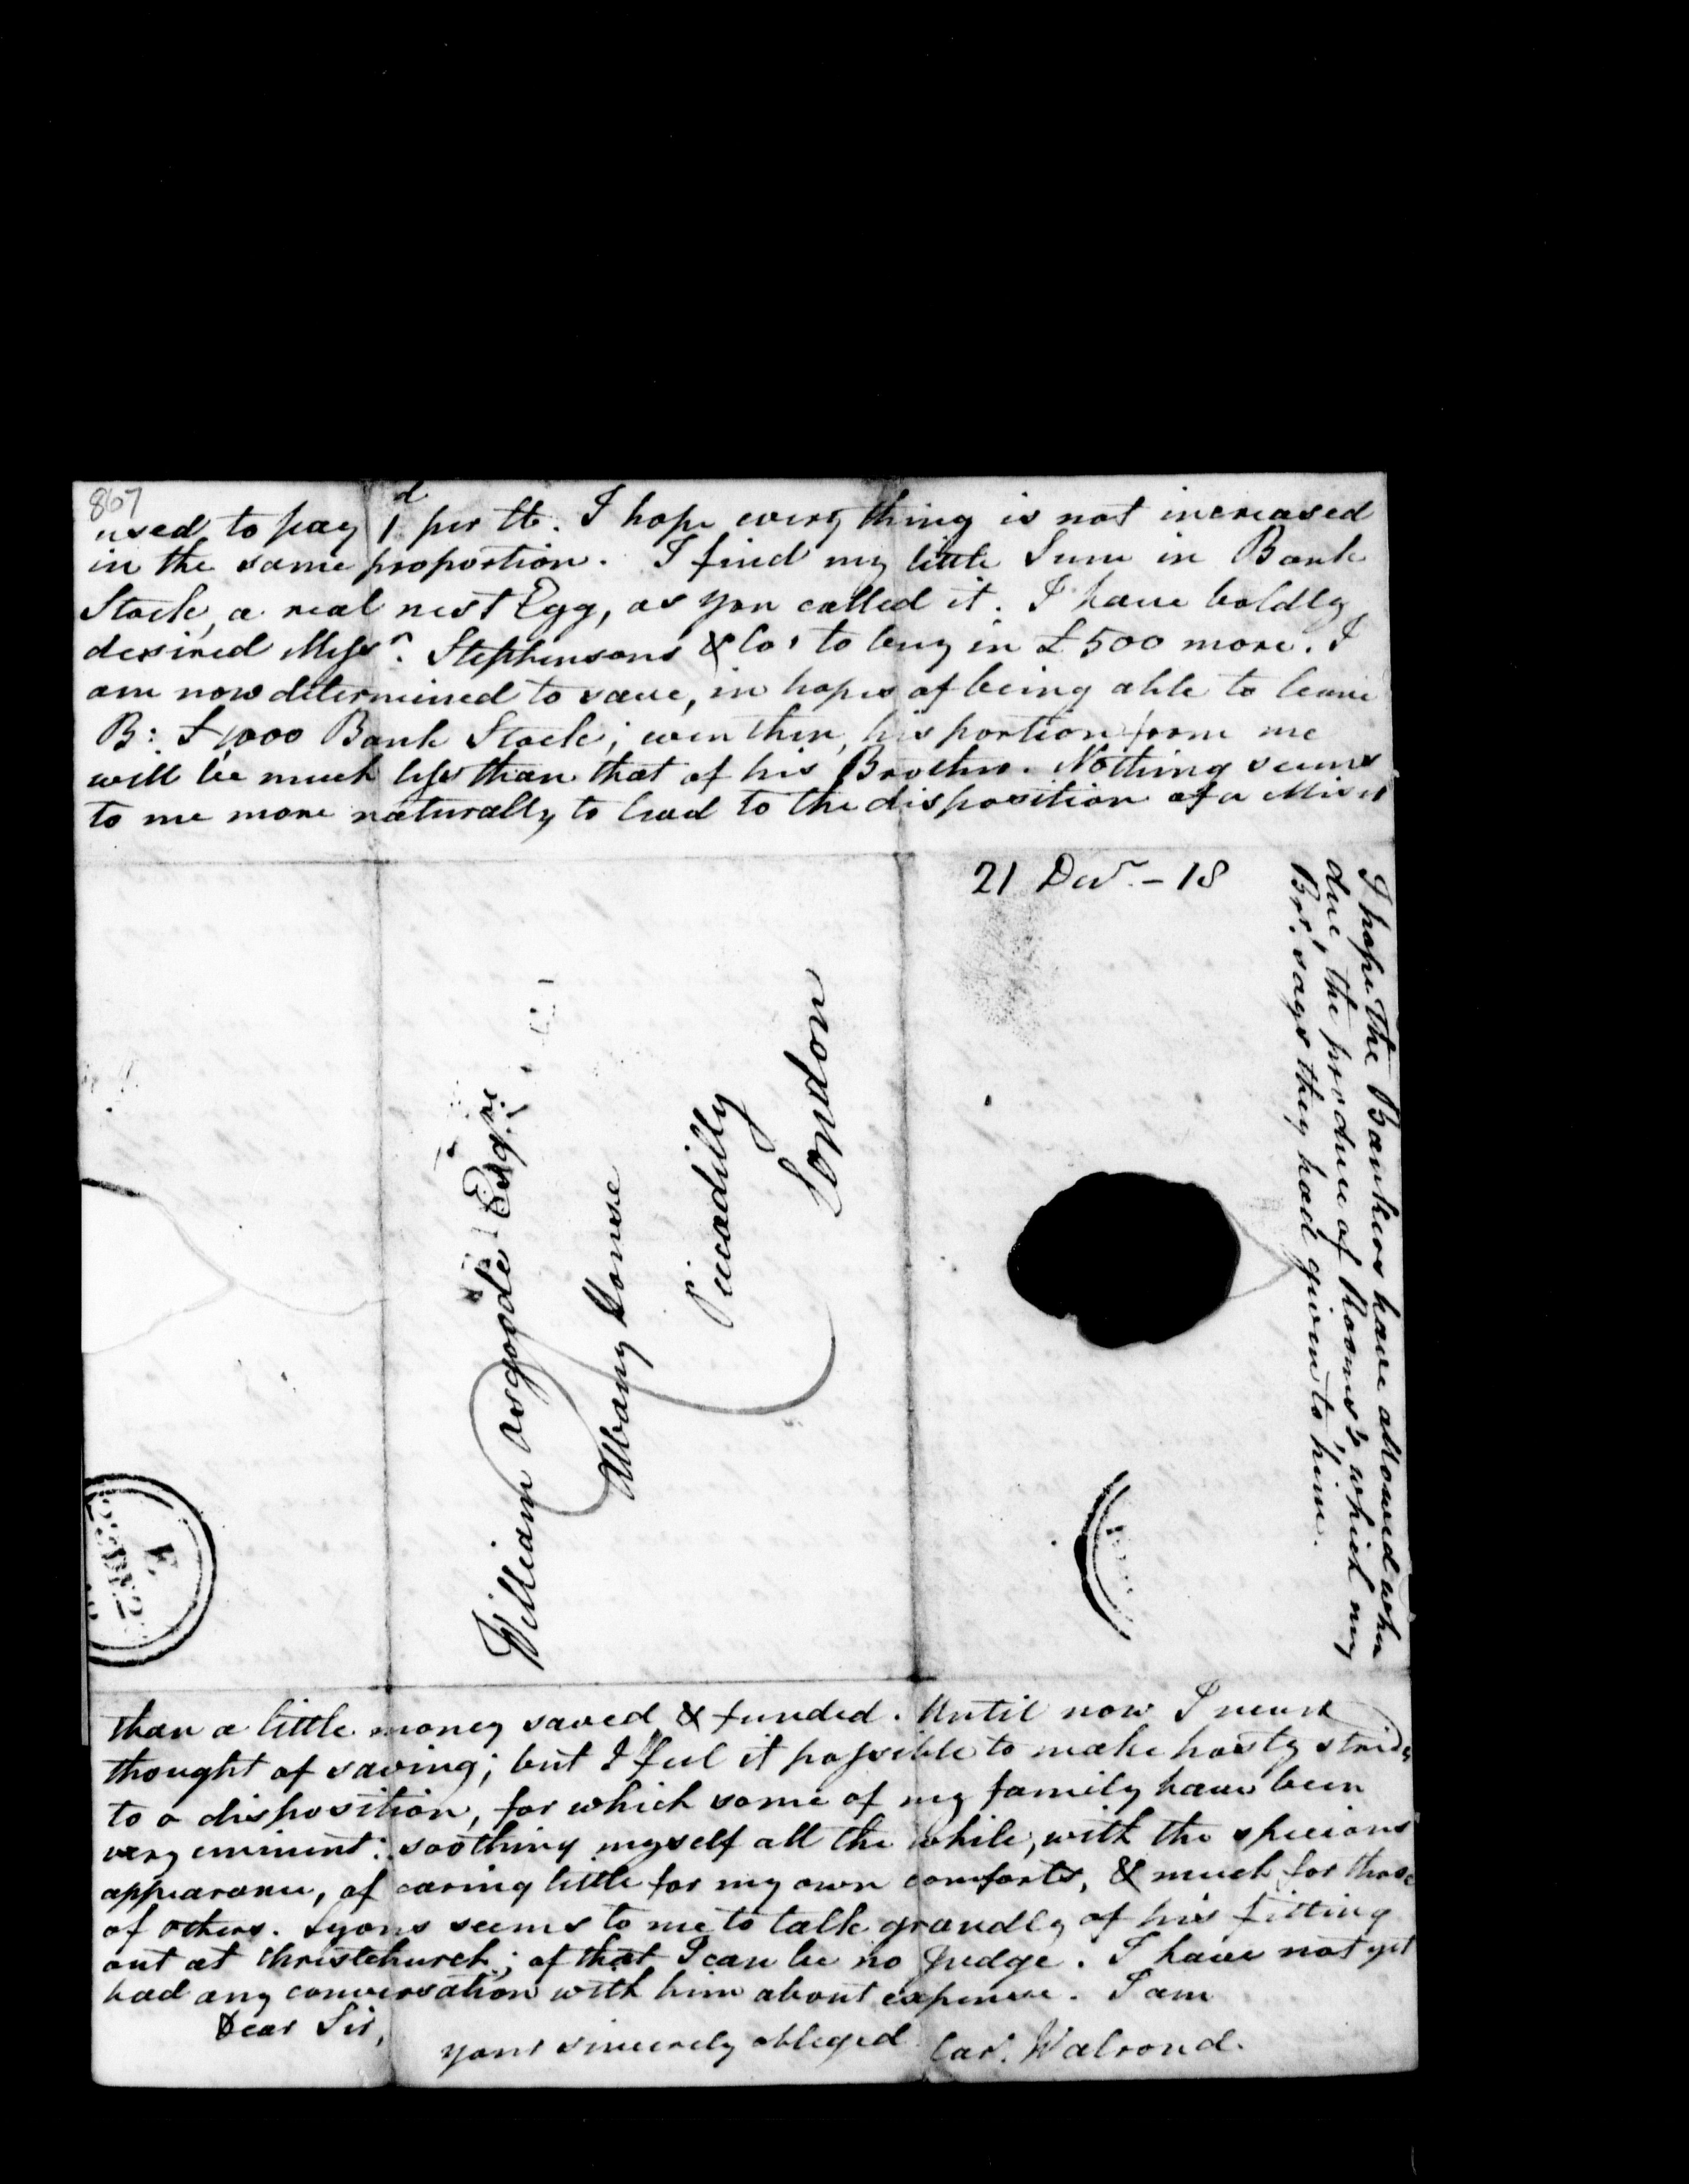 867
used to pay 1d per lb. I hope every thing is not increased
in the same proportion. I find my little Sum in Bank
Stock, a real nest Egg, as you called it. I have boldly
desired Messrs. Stephensons & Co. to buy in £500 more. I
am now determined to save, in hopes of being able to leave
B: £1000 Bank Stock; even then, his portion from me
will be much less than that of his Brother. Nothing seems
to me more naturally to lead to the disposition of a Miser
than a little money saved & funded. Until now I never
thought of saving; but I feel it possible to make hasty strides
to a disposition, for which some of my family have been
very eminent: soothing myself all the while, with the specious
appearance, of caring little for my own comforts, & much for those
of others. Lyons seems to me to talk grandly of his fitting
out at Christchurch; of that I can be no Judge. I have not yet
had any conversation with him about expense. I am
Dear Sir,
your sincerely obleged Car. Walrond.
21 Decr. - 18
I hope The Bankers have allowed when
due, the produce of Rooms's which my
Brr. says they had given to him.
William Osgoode Esqre.
Albany House
Piccadilly
London
E